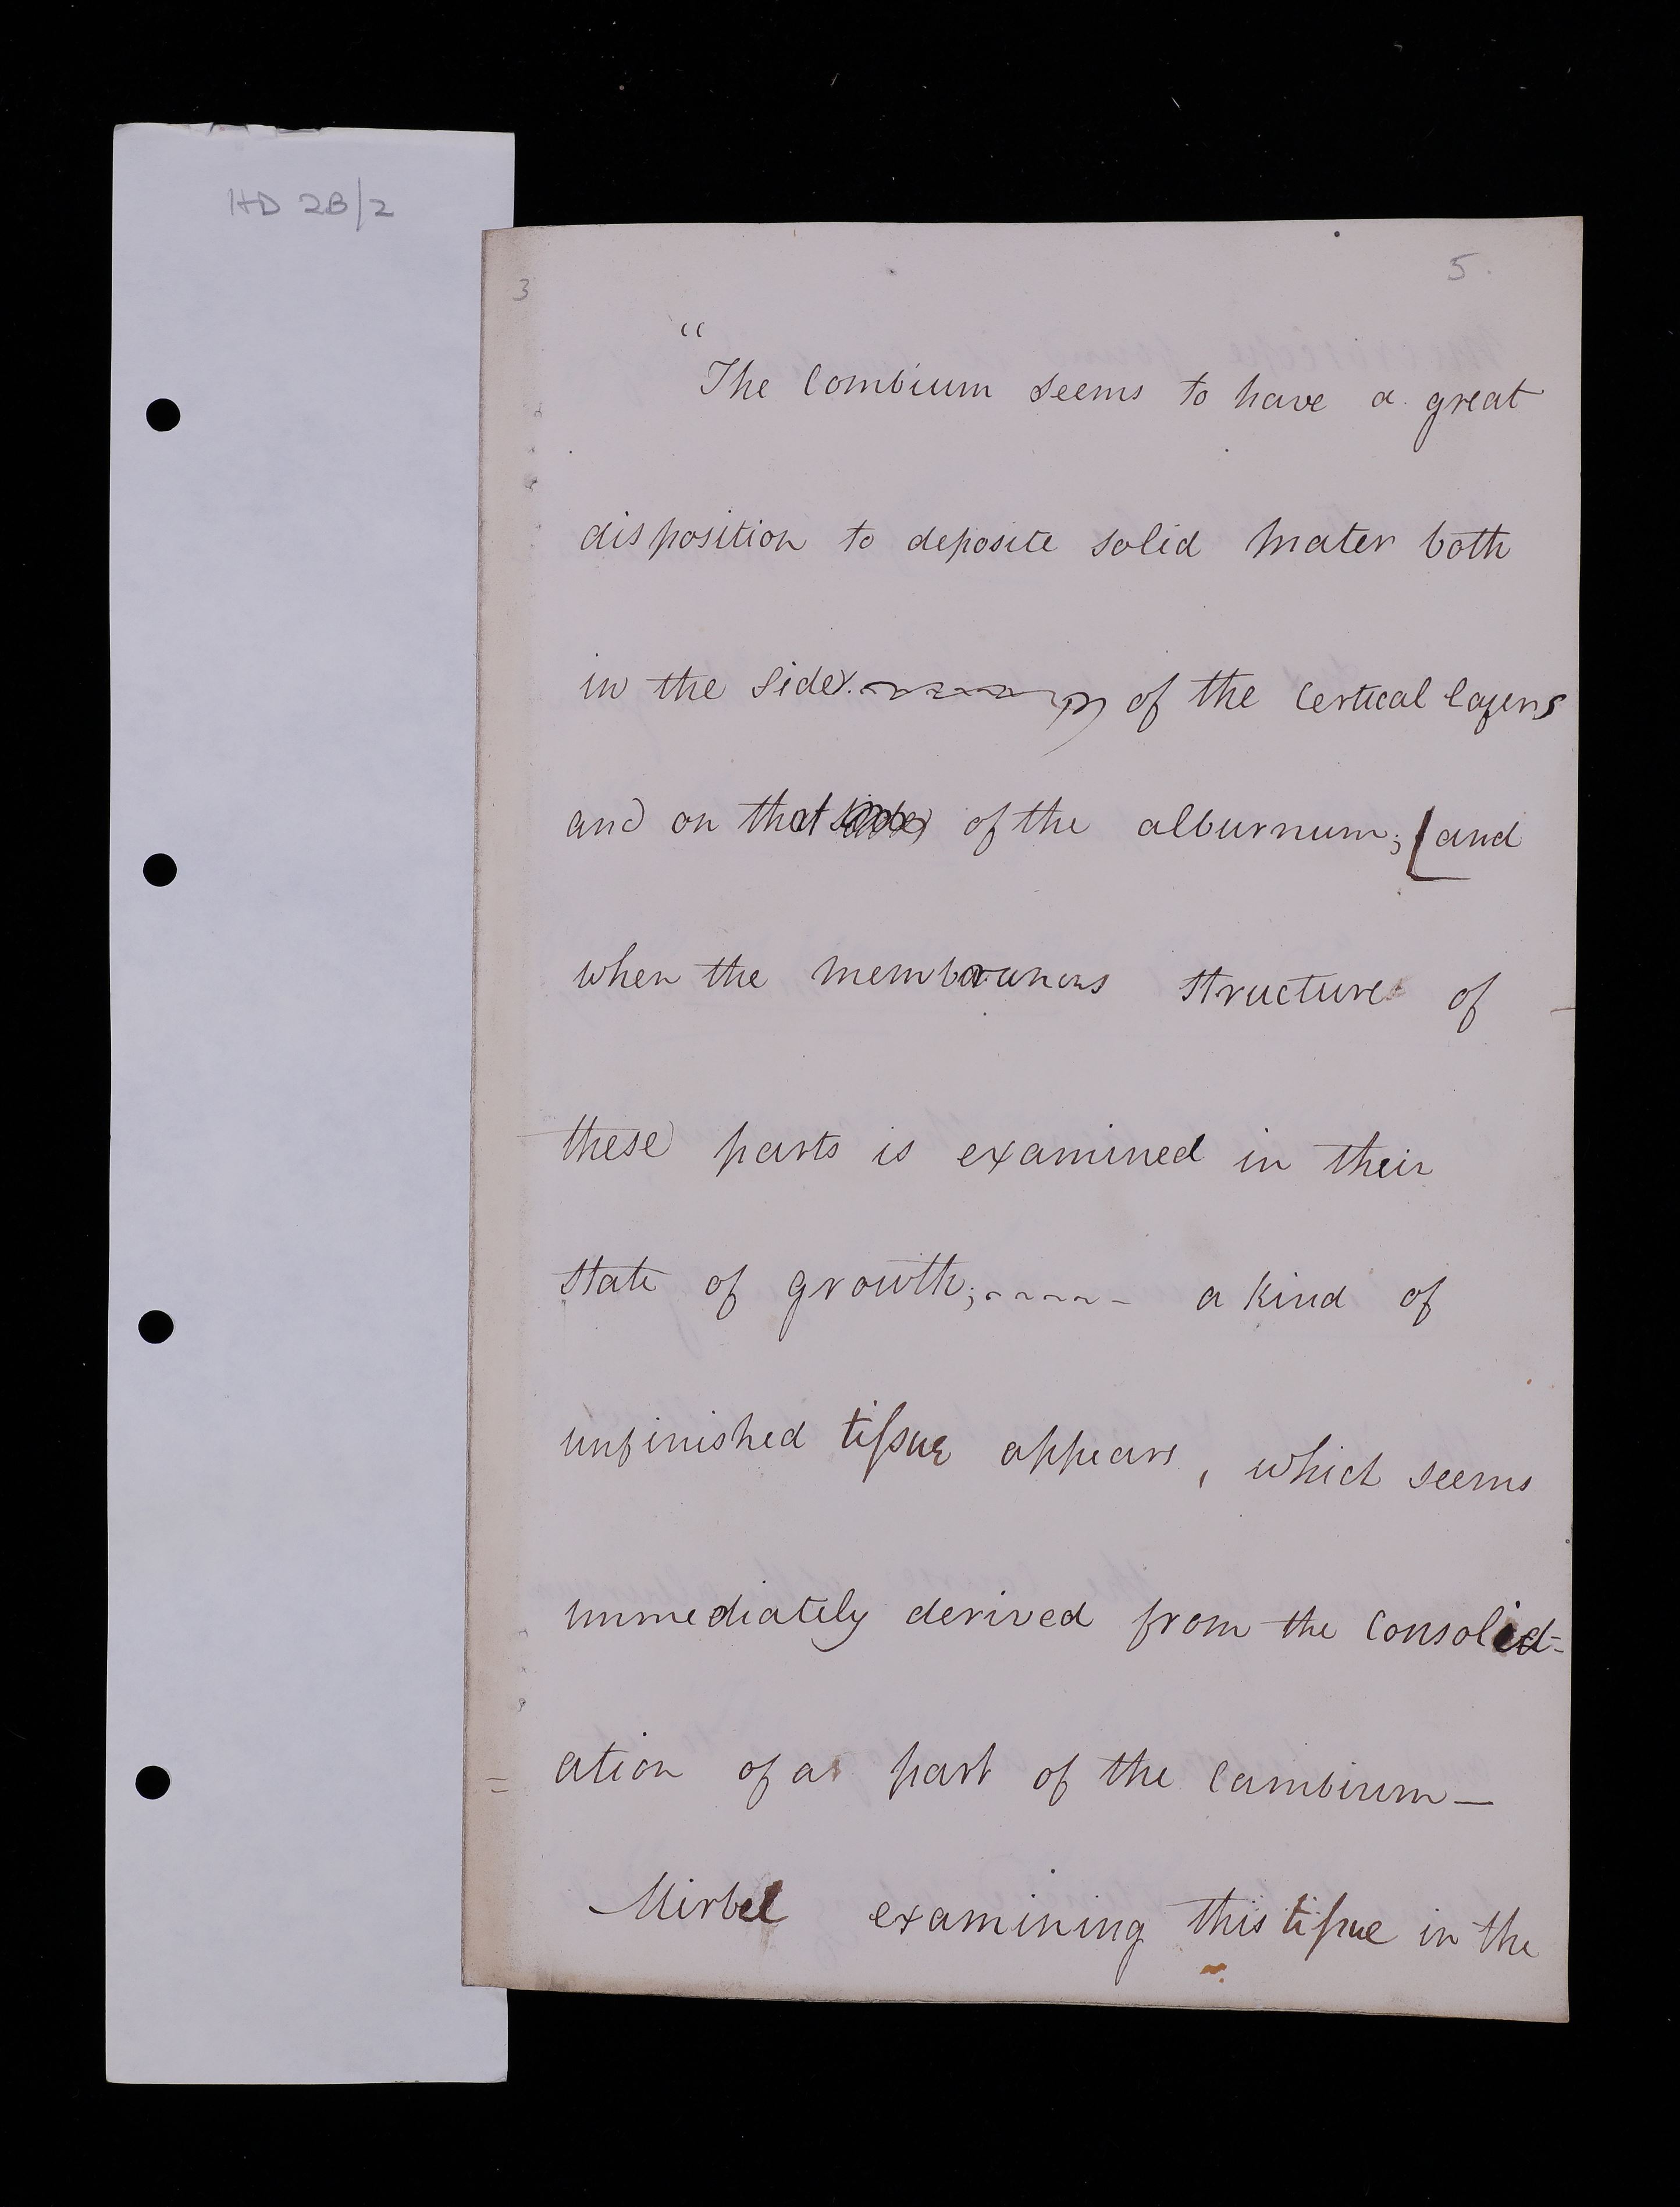 HD 2B/2
3
5.
"
The Combium seems to have a great
disposition to deposite solid mater both
in the side of the Certical layers
and on that of the alburnum; [and
when the membranous structure of
these parts is examined in their
state of growth; - - - - - a kind of
unfinished tissue appears, which seems
immediately derived from the Consolid-
= ation of a part of the Cambium —
Mirbel examining this tissue in the